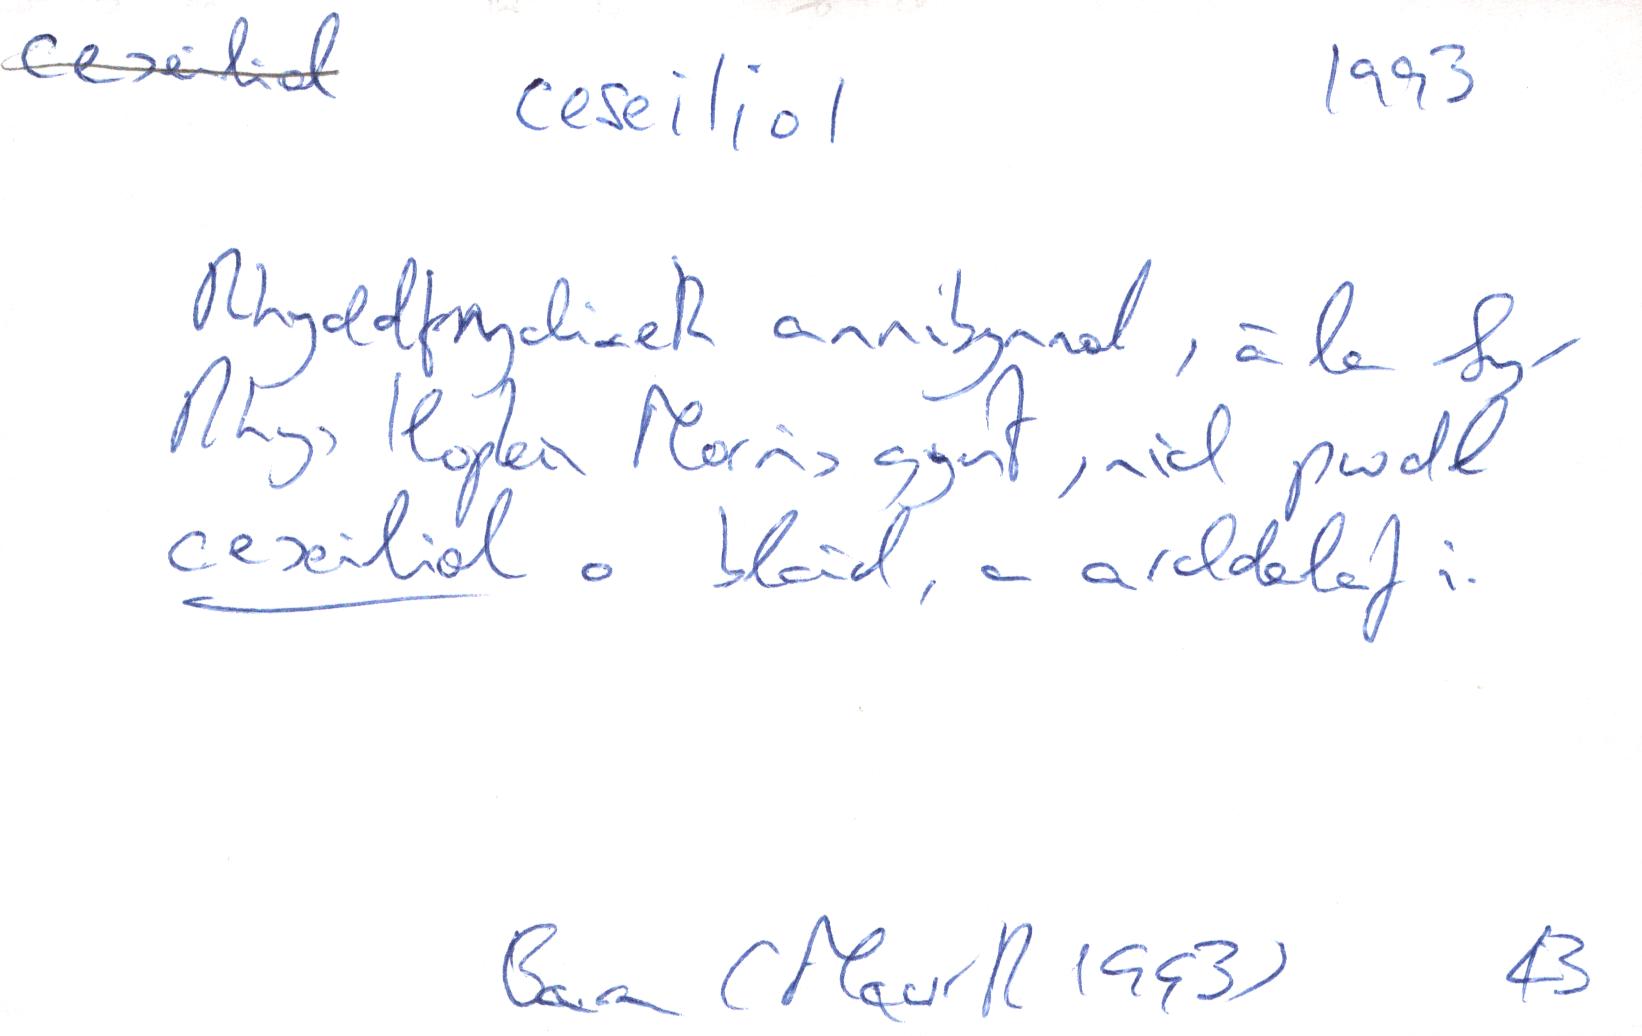 ceseiliol ceseiliol 1993
Rhyddfrydiaeth annibynnol, à la Syr
Rhys Hopkin Morris gynt, nid pwdl
ceseiliol o blaid, a arddelaf i.
Barn (Mawrth 1993) 43